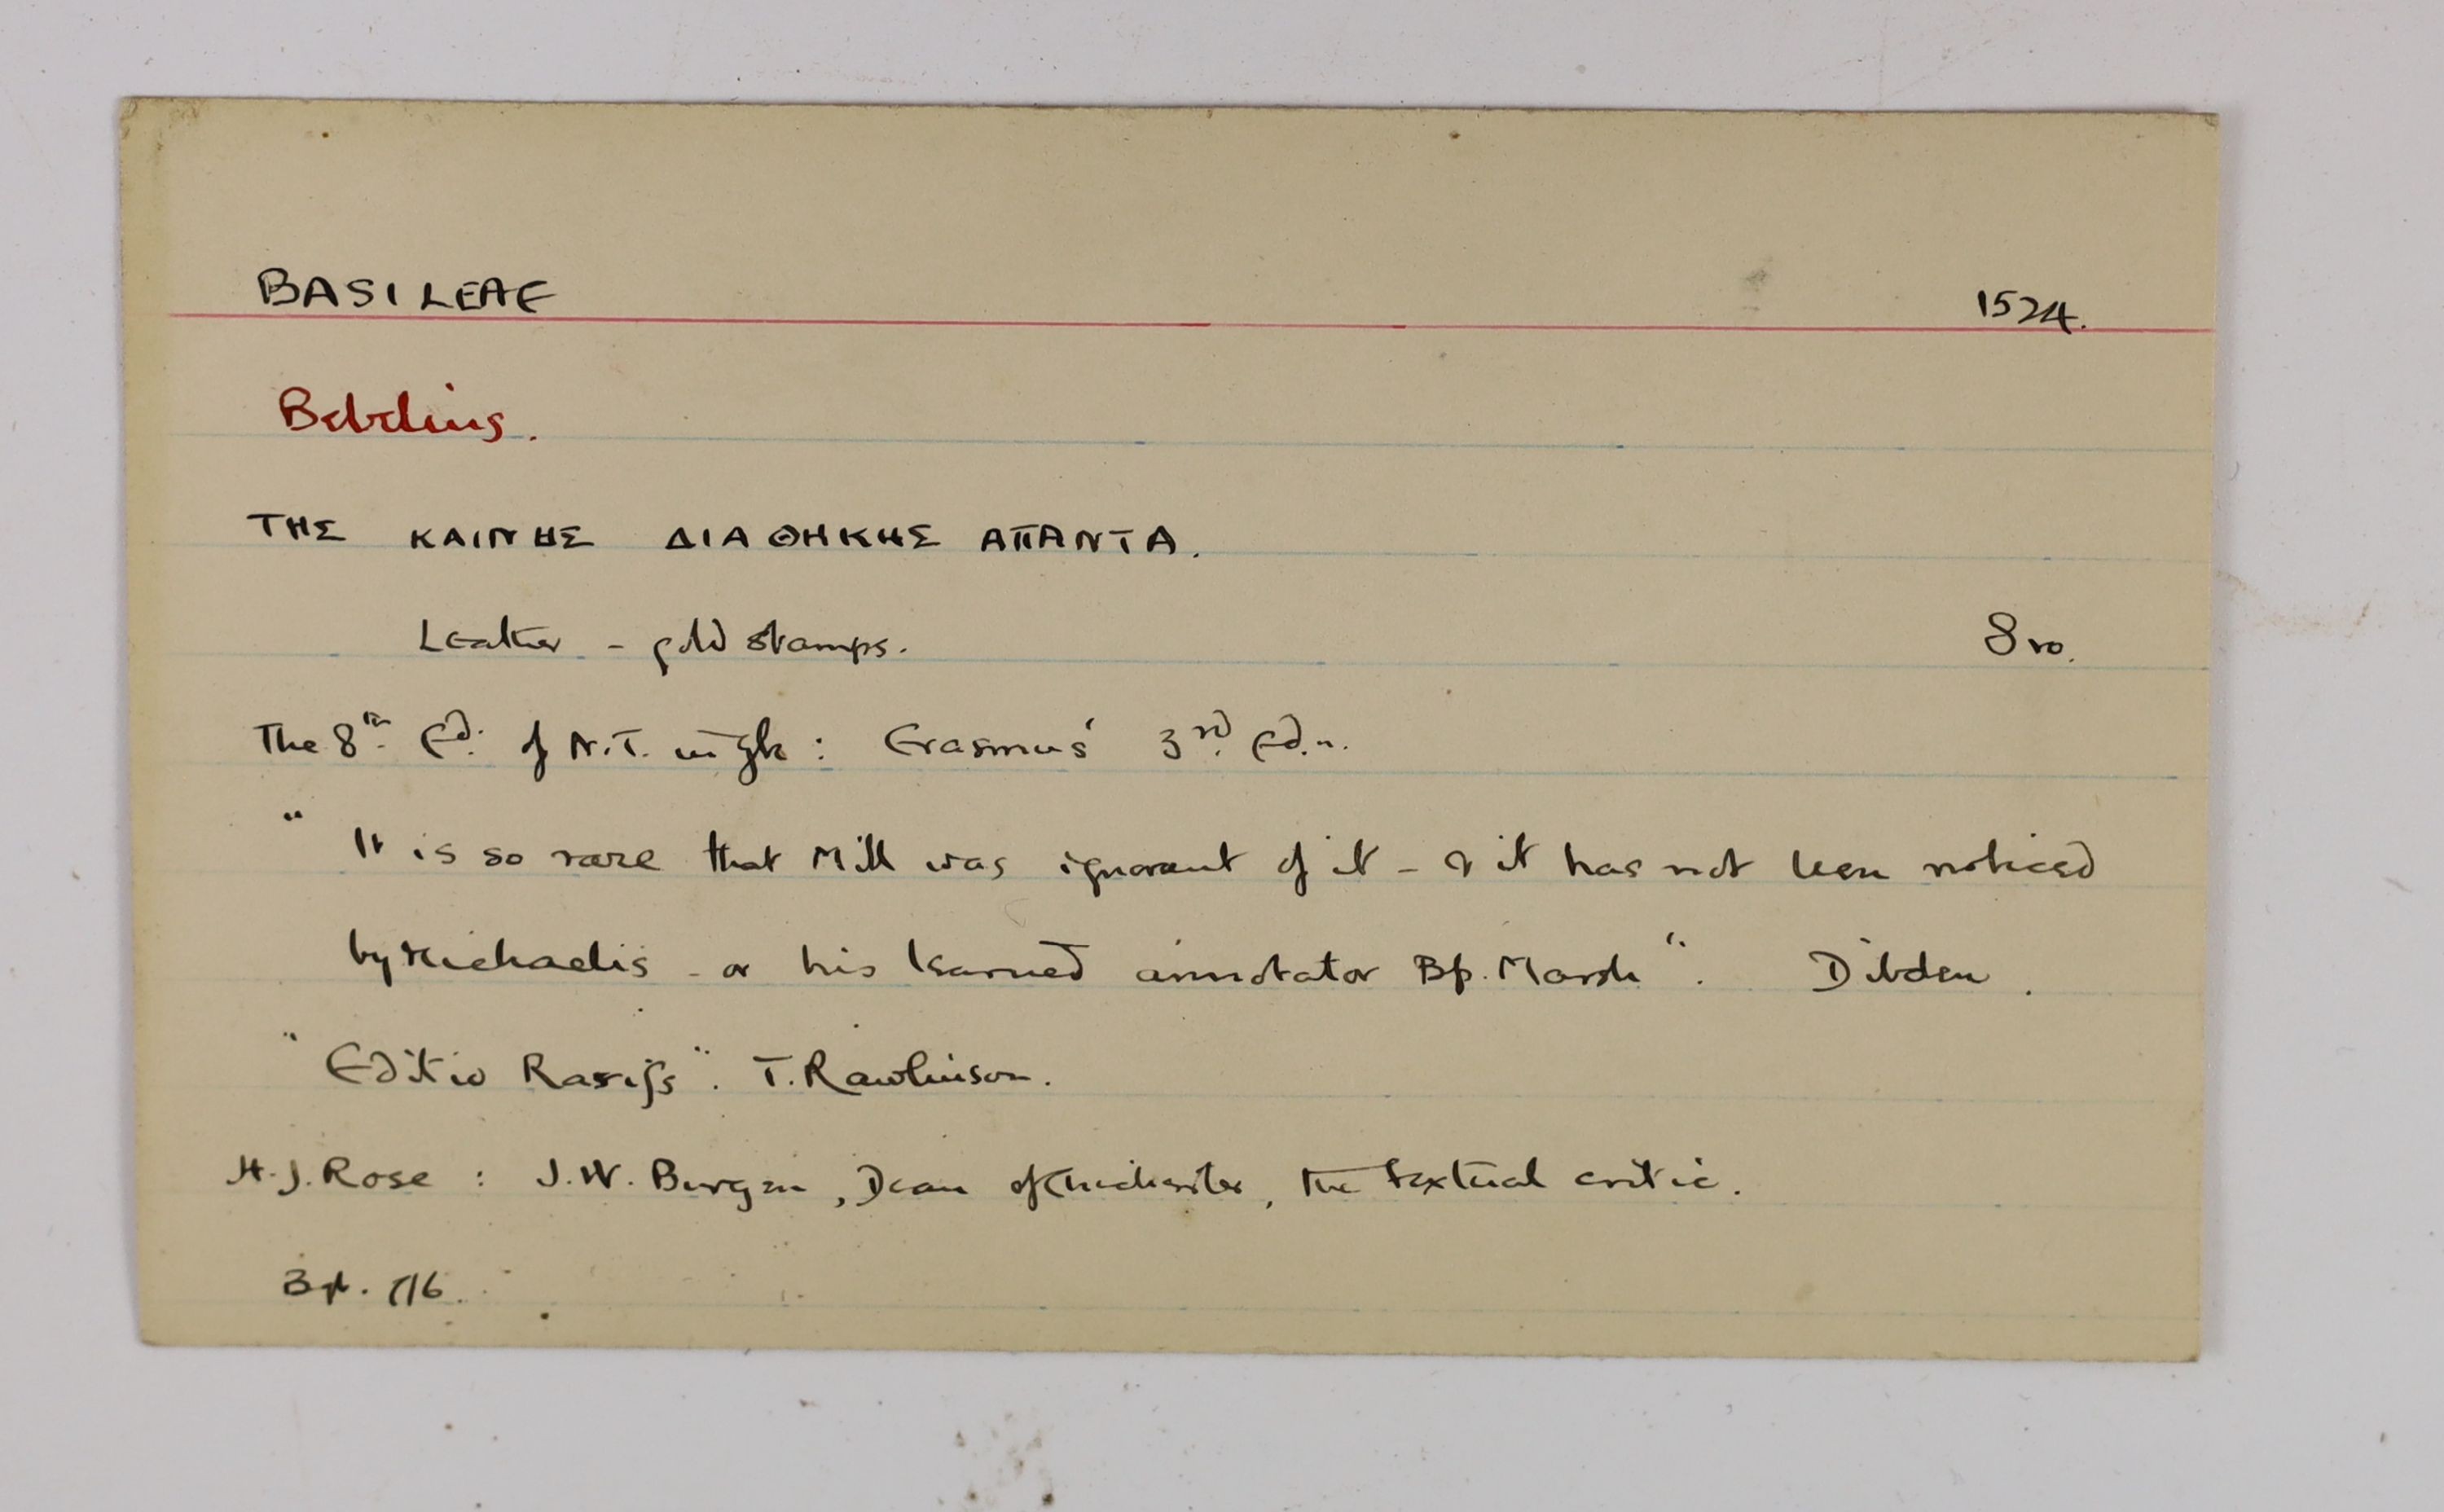 BASILEAE 1524.
Bebelius.
ΤΗΣ ΚΑΙΝΗΣ ΔΙΑΘΗΚΗΣ ΑΠΑΝΤΑ.
Leather - gold stamps. 8vo.
The 8th Ed. of N.T. in Gk : Erasmus' 3rd Edn.
"It is so rare that Mill was ignorant of it - & it has not been noticed
by Michaelis - or his learned annotator Bp. Marsh". Dibden.
"Editio Rariss". T. Rawlinson.
H.J. Rose : J.W. Burgon, Dean of Chichester, the textual critic.
716.